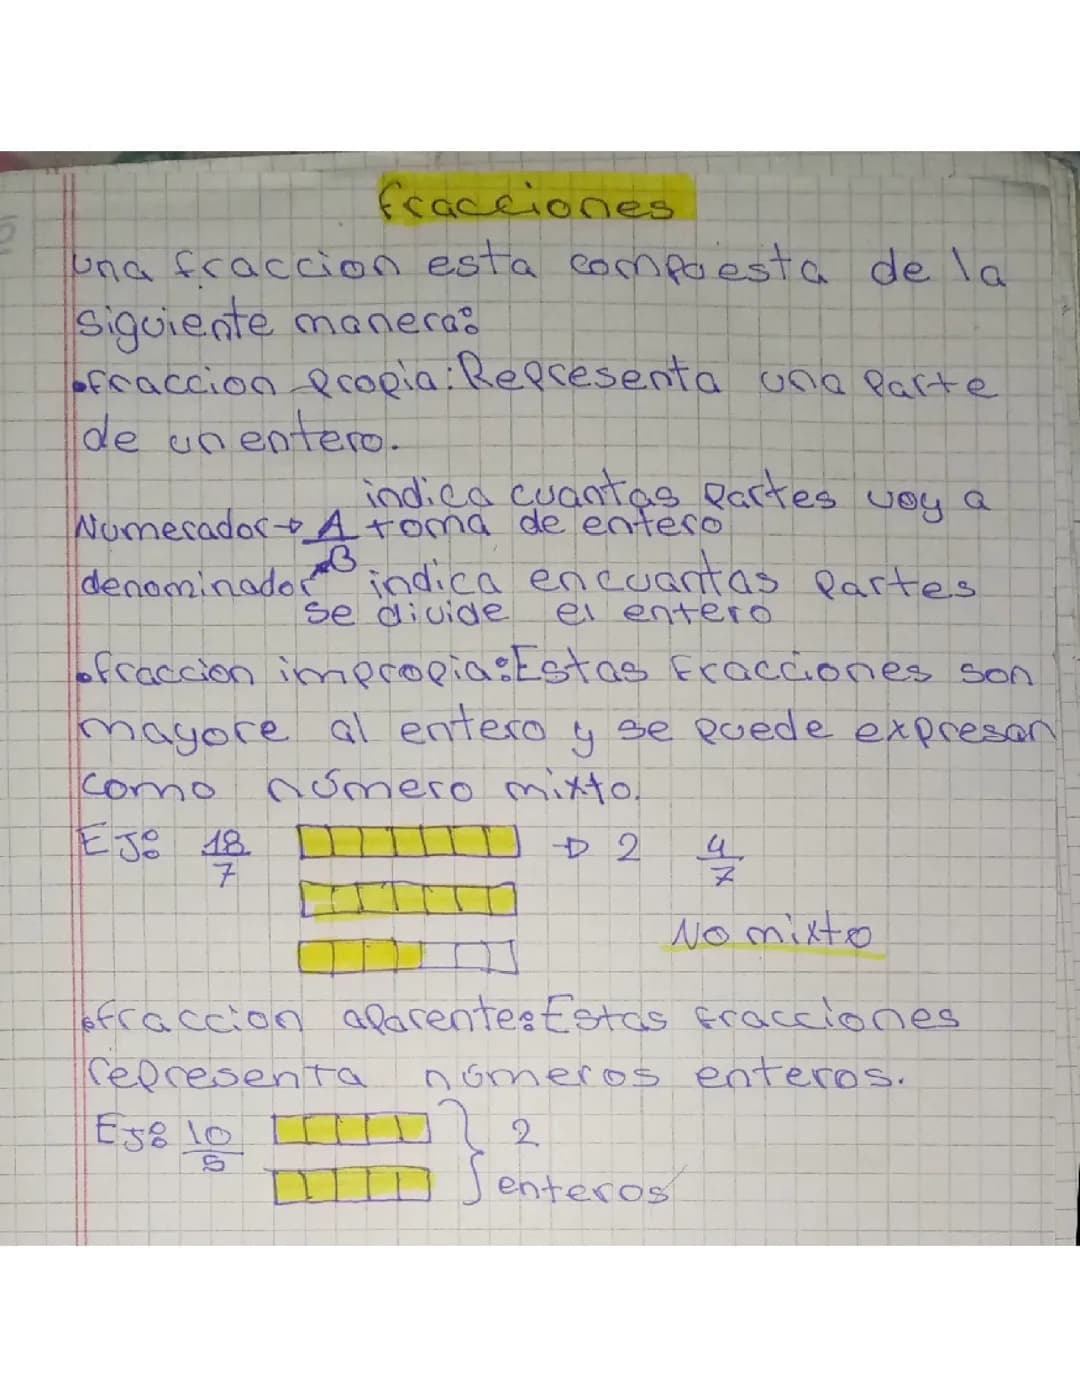 fracciones
una fraccion esta compuesta de la
siguiente manera:
•fraccion propia: Representa una parte
de un entero.
indica cuantas partes voy a
Numerador→ A toma de entero
B
denominador indica encuantas partes
se divide el entero
•fraccion impropia: Estas fracciones son
mayore al entero y se puede expresan
como número mixto.
EJ: 18/7 → 2 4/7
No mixto
•fraccion aparente: Estas fracciones
representa números enteros.
EJ: 10/5 } 2
enteros